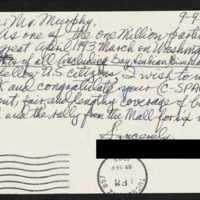 Mr. Murphy, 9-9
As one of the one million parti
great April 1993 March on Washingto
of all including Gay, Lesbian, Bi
fellow U.S. citizens I wish to
and congratulate your C-SPA
out, fair and lengthy coverage of
and the rally from the Mall for six
Sincerely,
TUCSON 857
PM
09 SEP
1993